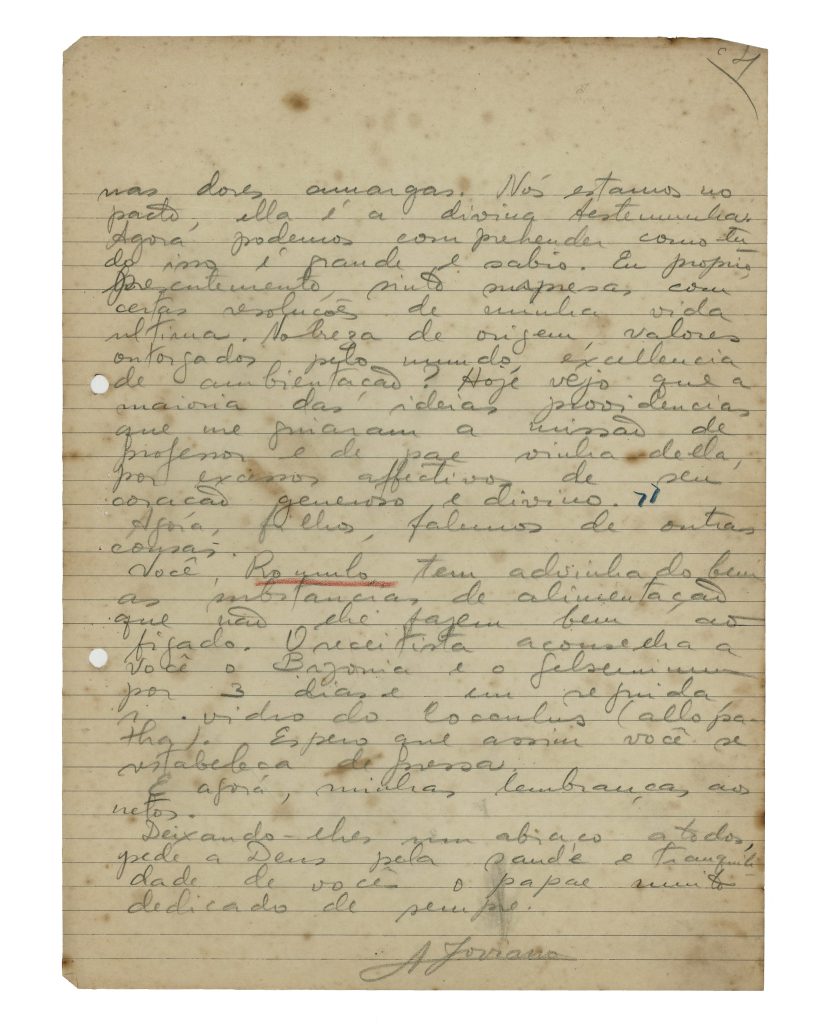 4
nas dores amargas. Nós estamos no
pacto, ella é a divina testemunha.
Agora podemos comprehender como tu-
do isso é grande e sabio. Eu proprio,
presentemente, sinto surpresas com
certas resoluções de minha vida
ultima. Nobreza de origem, valores
outorgados pelo mundo, excellencia
de ambientação? Hoje vejo que a
maioria das ideias providencias
que me guiaram a missão de
professor e de pae vinha della,
por excessos affectivos de seu
coração generoso e divino.
Agora, filhos, falemos de outras
cousas.
Você, Romulo, tem advinhado bem
as substancias de alimentação
que não lhe fazem bem ao
figado. O receitista aconselha a
você o Bryonia e o Gelsemium
por 3 dias e em seguida
1 vidro do Cocculus (allopa-
tha). Espero que assim você se
restabeleça depressa.
E agora, minhas lembranças aos
netos.
Deixando-lhes um abraço a todos,
pede a Deus pela saude e tranquili-
dade de vocês o papae muito
dedicado de sempre.
A Joviano